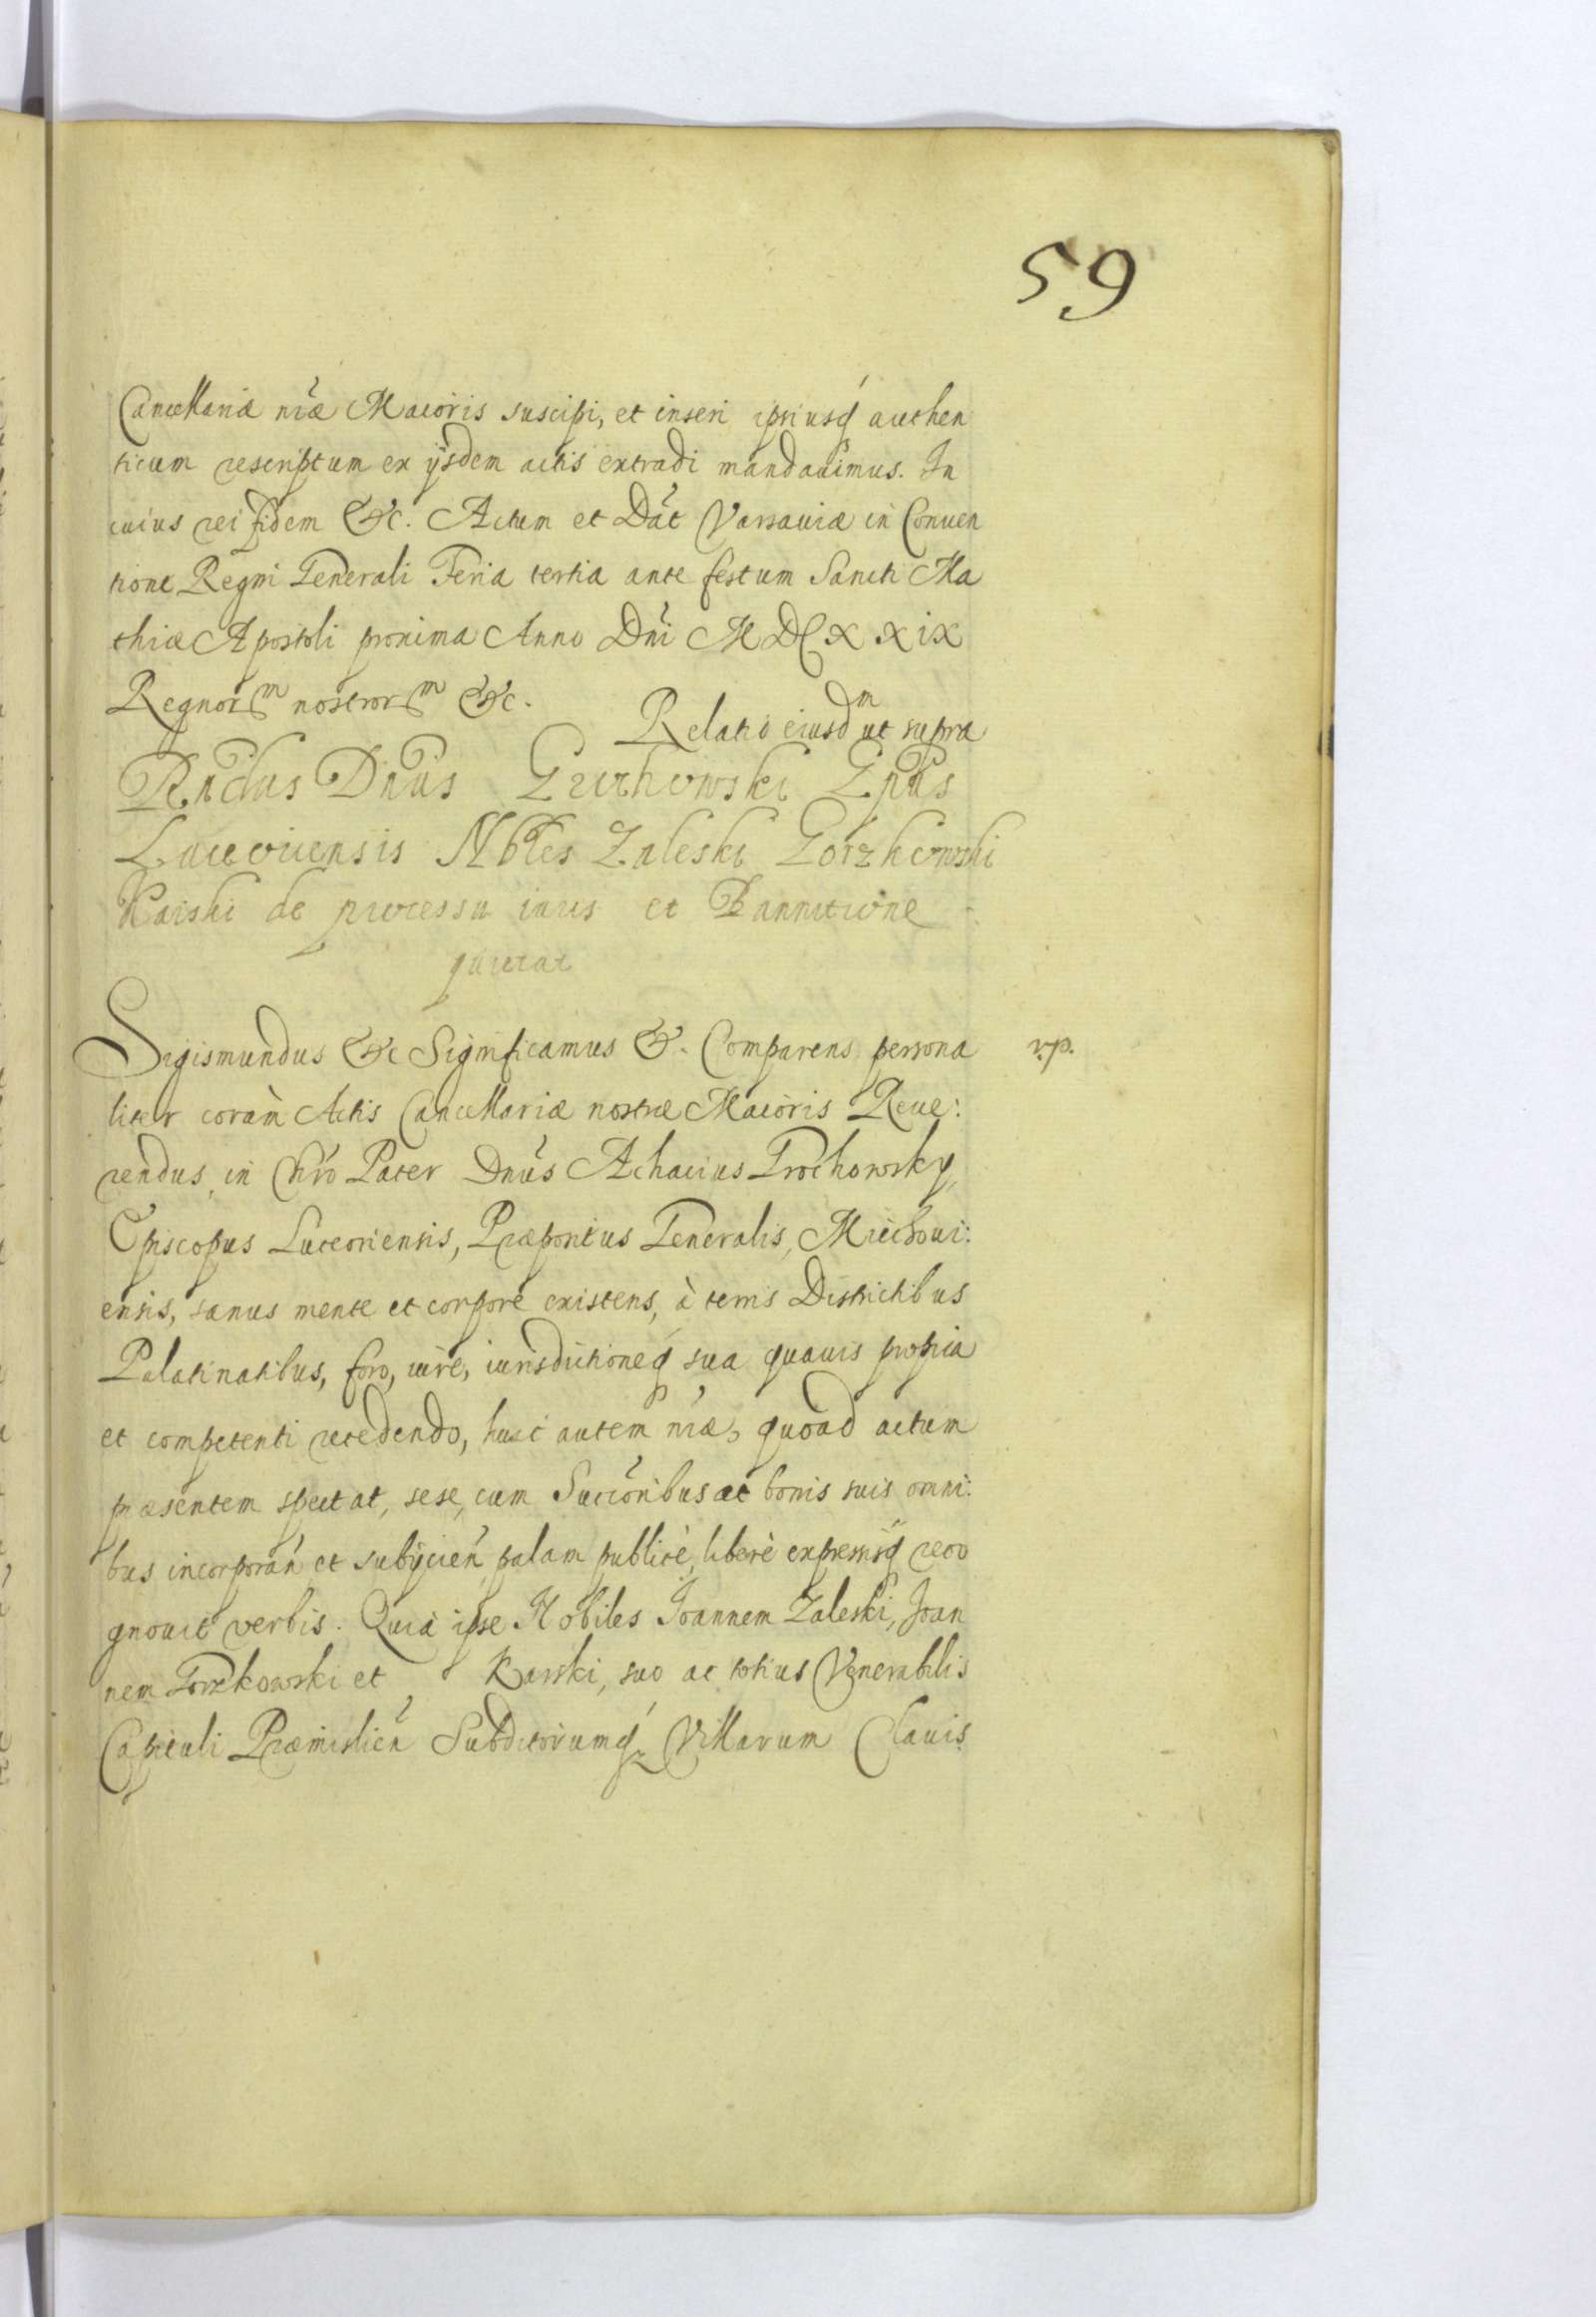 59
Cancellariæ nr̃æ Maioris suscipi, et inseri ipsiusq́ authen
ticum rescriptum ex ijsdem actis extradi mandauimus. In
cuius rei fidem &c. Actum et Dat̃ Varsauiæ in Conuen
tione Regni Generali Feria tertia ante festum Sancti Ma
thiæ Apostoli proxima Anno Dñi MDCXXIX
Regnorᵐ nostrorᵐ &c.
Relatio eiusdᵐ ut supra
Rñdus Dñus Grochowski Epũs
Luceoriensis Nobles Zaleski Gorzkowski
Karski de processu iuris et Bannitione
quietat
Sigismundus &c Significamus &. Comparens persona
liter coram Actis Cancellariæ nostræ Maioris Reue:
rendus in Chrõ Pater Dnũs Achacius Grochowsky,
Episcopus Luceoriensis, Præpositus Generalis, Miechoui:
ensis, sanus mente et corpore existens, à terris Districtibus
Palatinatibus, foro, iure, iurisdictioneq́ sua quauis propria
et competenti recedendo, huic autem nr̃æ, quoad actum
præsentem spectat, sese, cum Succr̃oribus ac bonis suis omni:
bus incorporañ et subijcień palam publicè, liberè expressisq́ reco
gnouit verbis. Quia ipse Nobiles Ioannem Zaleski, Joan
nem Gorzkowski et Karski, suo ac totius Venerabilis
Capituli Præmislień Subditorumq́ Villarum Clauis